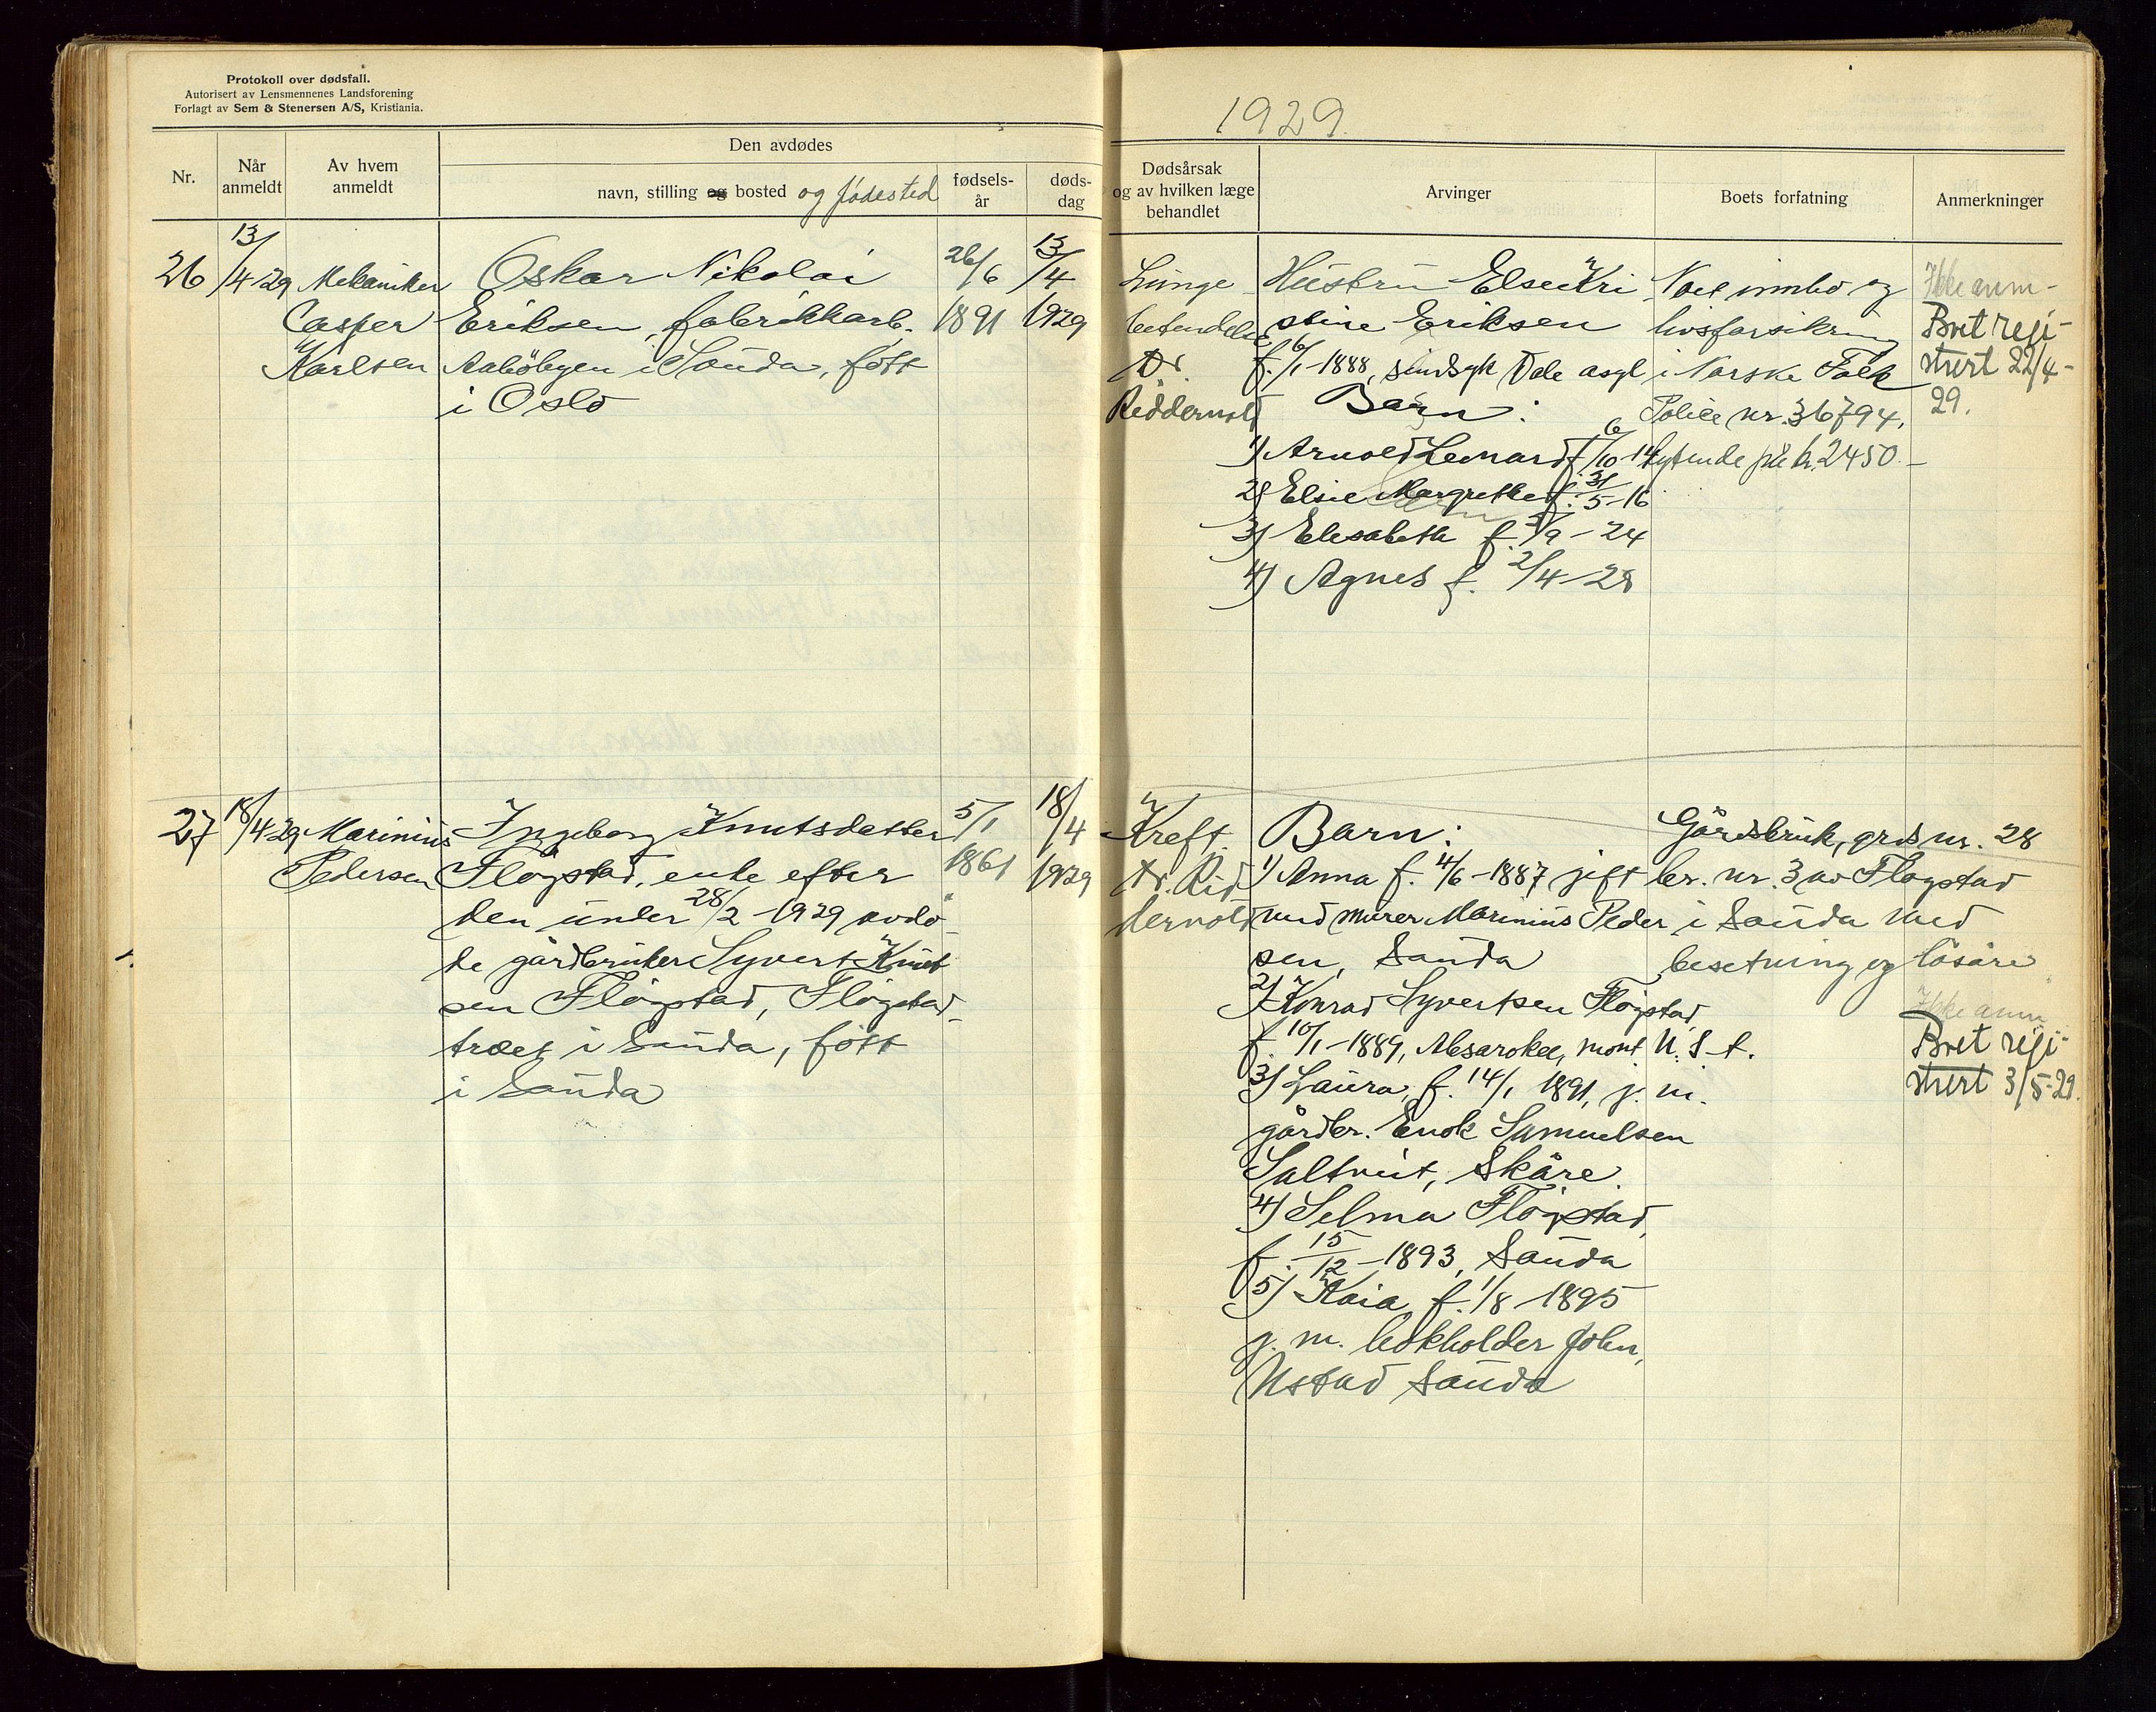 Protokoll over dødsfall.
Autorisert av Lensmennenes Landsforening
Forlagt av Sem & Stenersen A/S, Kristiania.
Nr.
Når
anmeldt
Av hvem
anmeldt
Den avdødes
navn, stilling og bosted og födested
fødsels-
år
døds-
dag
26
13/4 29
Mekaniker
Casper
Karlsen
Oskar Nikolai
Eriksen, fabrikkarb.
i Sauda, fött
i Oslo
26/6
1891
13/4
1929
27
18/4 29
Marinius
Pedersen
Ingeborg Knutsdatter
Flögstad, enke efter
den under 28/2 - 1929 avdö-
de gårdbruker Syvert Knut
sen Flögstad, Flögstad-
træet i Sauda, fött
i Sauda
5/1
1861
18/4
1929
1929.
Dødsårsak
og av hvilken læge
behandlet
Arvinger
Boets forfatning
Anmerkninger
Lunge
betendelse
Dr.
Riddervold
Hustru Else Kri
stine Eriksen
f. 6/1 - 1888, sindsyk Dale asyl
Barn:
1) Arnold Lenard f. 6/10 - 14
2) Elsie Margrethe f. 31/5 - 16
3) Elesabeth f. 5/9 - 24
4) Agnes f. 2/4 - 28
Noe innbo og
livsforsikring
i Norske Folk
Police nr. 36794,
lydende på kr. 2450.-
Ikke anm-
Boet regi-
strert 22/4-
29.
Kreft.
Dr. Rid
dervold
Barn:
1) Anna f. 4/6 - 1887 gift
med murer Marinius Peder
sen, Sauda
2) Konrad Syvertsen Flögstad,
f. 10/1 - 1889, Absarokee, mont U. S. A.
3) Laura, f. 14/1 1891, g. m.
gårdbr. Enok Samuelsen
Saltveit, Skåre.
4) Selma Flögstad,
f. 15/12 - 1893, Sauda
5) Kaia, f. 1/8 - 1895
g. m. bokholder John
Ustad Sauda
Gårdsbruk, grds nr. 28
br. nr. 3 av Flögstad
i Sauda med
besetning og lösöre
Ikke anm
Boet regi-
strert 3/5-29.